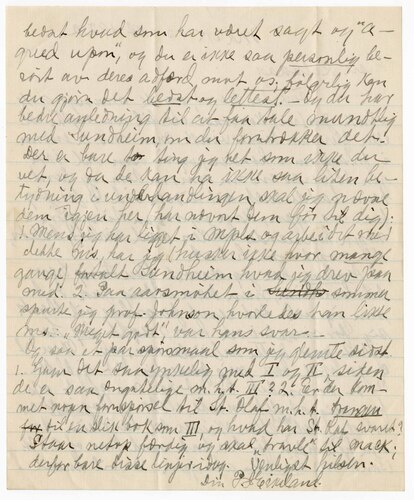 bedst hvad som har været sagt og "a-
greed upon", og du er ikke saa personlig be-
rørt av deres adfærd mot os; følgelig kan
du gjøre det bedst og lettest. — Og du har
bedre anledning til at faa tale mundtlig
med Sundheim om du foretrækker det.
Der er bare to ting jeg vet som ikke du
vet, og da de kan ha ikke saa liten be-
tydning i underhandlingen skal jeg nævne
dem igjen her, har nævnt dem før til dig:
1. Mens jeg har ligget i Mpls og arbeidet med
dette her har jeg (husker ikke hvor mange
gange) fortalt Sundheim hvad jeg drev paa
med. 2. Paa aarsmøtet i sommer
spurte jeg prof. Johnson, hvordan han likte
: "Meget godt" var hans svar.
Og saa et par spørsmaal som jeg glemte sidst.
1. Gjøm det saa ynkelig med I og II, siden
de er saa ængstelige m.h.t. III? 2. Er der kom-
met nogen forespørsel til St. Olaf m.h.t.
til en slik bok som III, og hvad har St. Olaf svaret?
Staar netop færdig og skal "travle" til
derfor bare disse linjer idag. Venligst hilsen.
Din P. J. Eikeland.